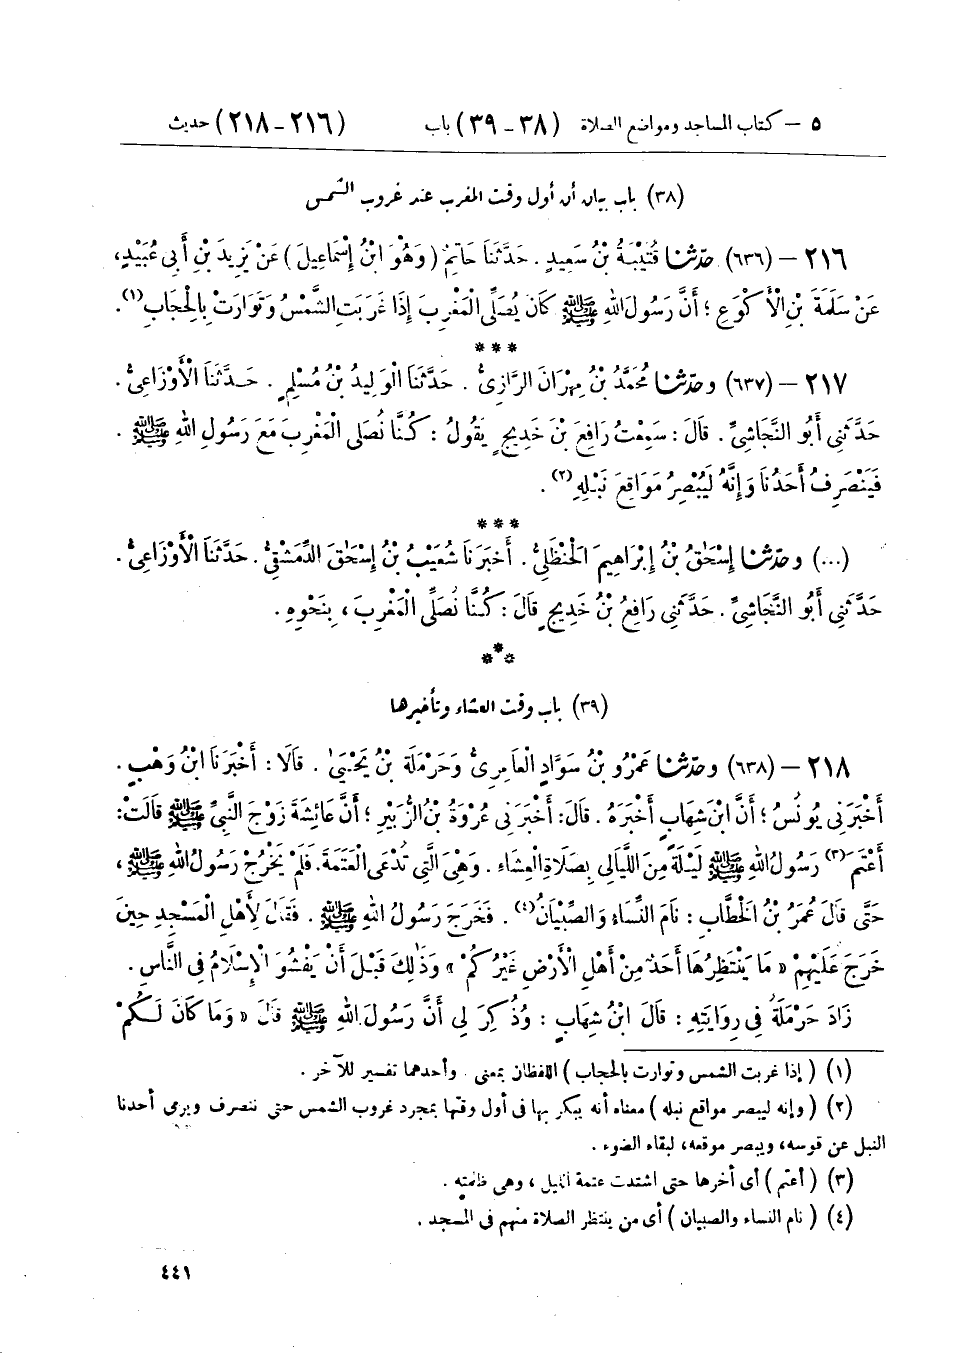 ٥ – كتاب المساجد ومواضع الصلاة (٣٨ - ٣٩) باب (٢١٦ - ٢١٨) حديث
(٣٨) باب بيان أن أول وقت المغرب عند غروب الشمس
٢١٦ – (٦٣٦) حَدَّثَنَا قُتَيْبَةُ بْنُ سَعِيدٍ . حَدَّثَنَا حَاتِمٌ (وَهُوَ ابْنُ إِسْمَاعِيلَ) عَنْ يَزِيدَ بْنِ أَبِي عُبَيْدٍ،
عَنْ سَلَمَةَ بْنِ الْأَكْوَعِ ؛ أَنَّ رَسُولَ اللهِ ﷺ كَانَ يُصَلِّي الْمَغْرِبَ إِذَا غَرَبَتِ الشَّمْسُ وَتَوَارَتْ بِالْحِجَابِ(١) .
***
٢١٧ – (٦٣٧) وحَدَّثَنَا مُحَمَّدُ بْنُ مِهْرَانَ الرَّازِيُّ . حَدَّثَنَا الْوَلِيدُ بْنُ مُسْلِمٍ . حَدَّثَنَا الْأَوْزَاعِيُّ .
حَدَّثَنِي أَبُو النَّجَاشِيِّ . قَالَ : سَمِعْتُ رَافِعَ بْنَ خَدِيجٍ يَقُولُ : كُنَّا نُصَلِّي الْمَغْرِبَ مَعَ رَسُولِ اللهِ ﷺ .
فَيَنْصَرِفُ أَحَدُنَا وَإِنَّهُ لَيُبْصِرُ مَوَاقِعَ نَبْلِهِ(٢) .
***
(...) وحَدَّثَنَا إِسْحَقُ بْنُ إِبْرَاهِيمَ الْحَنْظَلِيُّ . أَخْبَرَنَا شُعَيْبُ بْنُ إِسْحَقَ الدِّمَشْقِيُّ . حَدَّثَنَا الْأَوْزَاعِيُّ .
حَدَّثَنِي أَبُو النَّجَاشِيِّ . حَدَّثَنِي رَافِعُ بْنُ خَدِيجٍ قَالَ : كُنَّا نُصَلِّي الْمَغْرِبَ ، بِنَحْوِهِ .
***
(٣٩) باب وقت العشاء وتأخيرها
٢١٨ – (٦٣٨) وحَدَّثَنَا عَمْرُو بْنُ سَوَّادٍ الْعَامِرِيُّ وَحَرْمَلَةُ بْنُ يَحْيَىٰ . قَالَا : أَخْبَرَنَا ابْنُ وَهْبٍ .
أَخْبَرَنِي يُونُسُ ؛ أَنَّ ابْنَ شِهَابٍ أَخْبَرَهُ . قَالَ : أَخْبَرَنِي عُرْوَةُ بْنُ الزُّبَيْرِ ؛ أَنَّ عَائِشَةَ زَوْجَ النَّبِيِّ ﷺ قَالَتْ :
أَعْتَمَ(٣) رَسُولُ اللهِ ﷺ لَيْلَةً مِنَ اللَّيَالِي بِصَلَاةِ الْعِشَاءِ . وَهِيَ الَّتِي تُدْعَى الْعَتَمَةَ . فَلَمْ يَخْرُجْ رَسُولُ اللهِ ﷺ ،
حَتَّى قَالَ عُمَرُ بْنُ الْخَطَّابِ : نَامَ النِّسَاءُ وَالصِّبْيَانُ(٤) . فَخَرَجَ رَسُولُ اللهِ ﷺ . فَقَالَ لِأَهْلِ الْمَسْجِدِ حِينَ
خَرَجَ عَلَيْهِمْ « مَا يَنْتَظِرُهَا أَحَدٌ مِنْ أَهْلِ الْأَرْضِ غَيْرُكُمْ » وَذَلِكَ قَبْلَ أَنْ يَفْشُوَ الْإِسْلَامُ فِي النَّاسِ .
زَادَ حَرْمَلَةُ فِي رِوَايَتِهِ : قَالَ ابْنُ شِهَابٍ : وَذُكِرَ لِي أَنَّ رَسُولَ اللهِ ﷺ قَالَ « وَمَا كَانَ لَكُمْ
(١) (إذا غربت الشمس وتوارت بالحجاب) اللفظان بمعنى . وأحدهما تفسير للآخر .
(٢) (وإنه ليبصر مواقع نبله) معناه أنه يبكر بها في أول وقتها بمجرد غروب الشمس حتى ننصرف ويرمى أحدنا
النبل عن قوسه، ويبصر موقعه، لبقاء الضوء .
(٣) (أعتم) أى أخرها حتى اشتدت عتمة الليل ، وهى ظلمته .
(٤) (نام النساء والصبيان) أى من ينتظر الصلاة منهم فى المسجد .
٤٤١